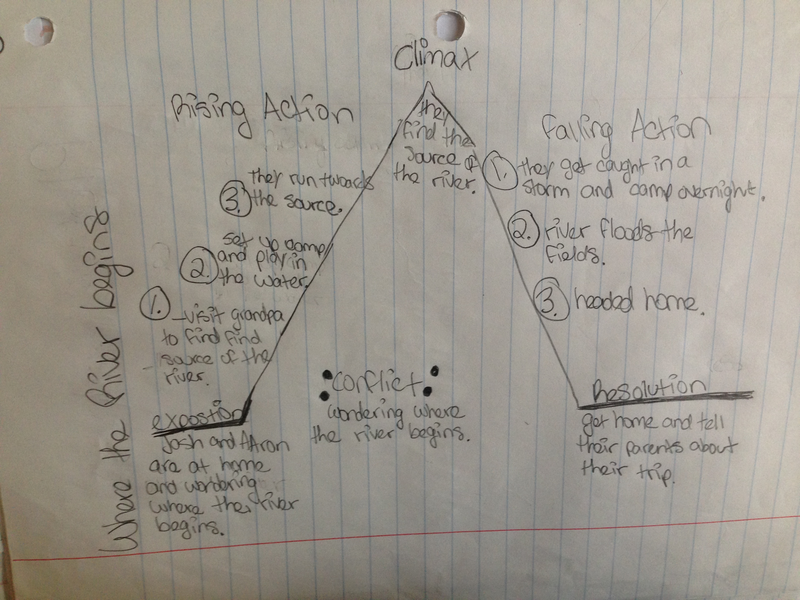 Where the River begins
Climax
they
find the
source of
the river.
Rising Action
3. they run twoads
the source.
2. set up camp
and play in
the water.
1. visit grandpa
to find find
source of the
river.
exposition
Josh and AAron
are at home
and wondering
where the river
begins.
Conflict
wondering where
the river begins.
Falling Action
1. they get caught in a
storm and camp overnight.
2. river floods the
fields.
3. headed home.
Resolution
get home and tell
their parents about
their trip.